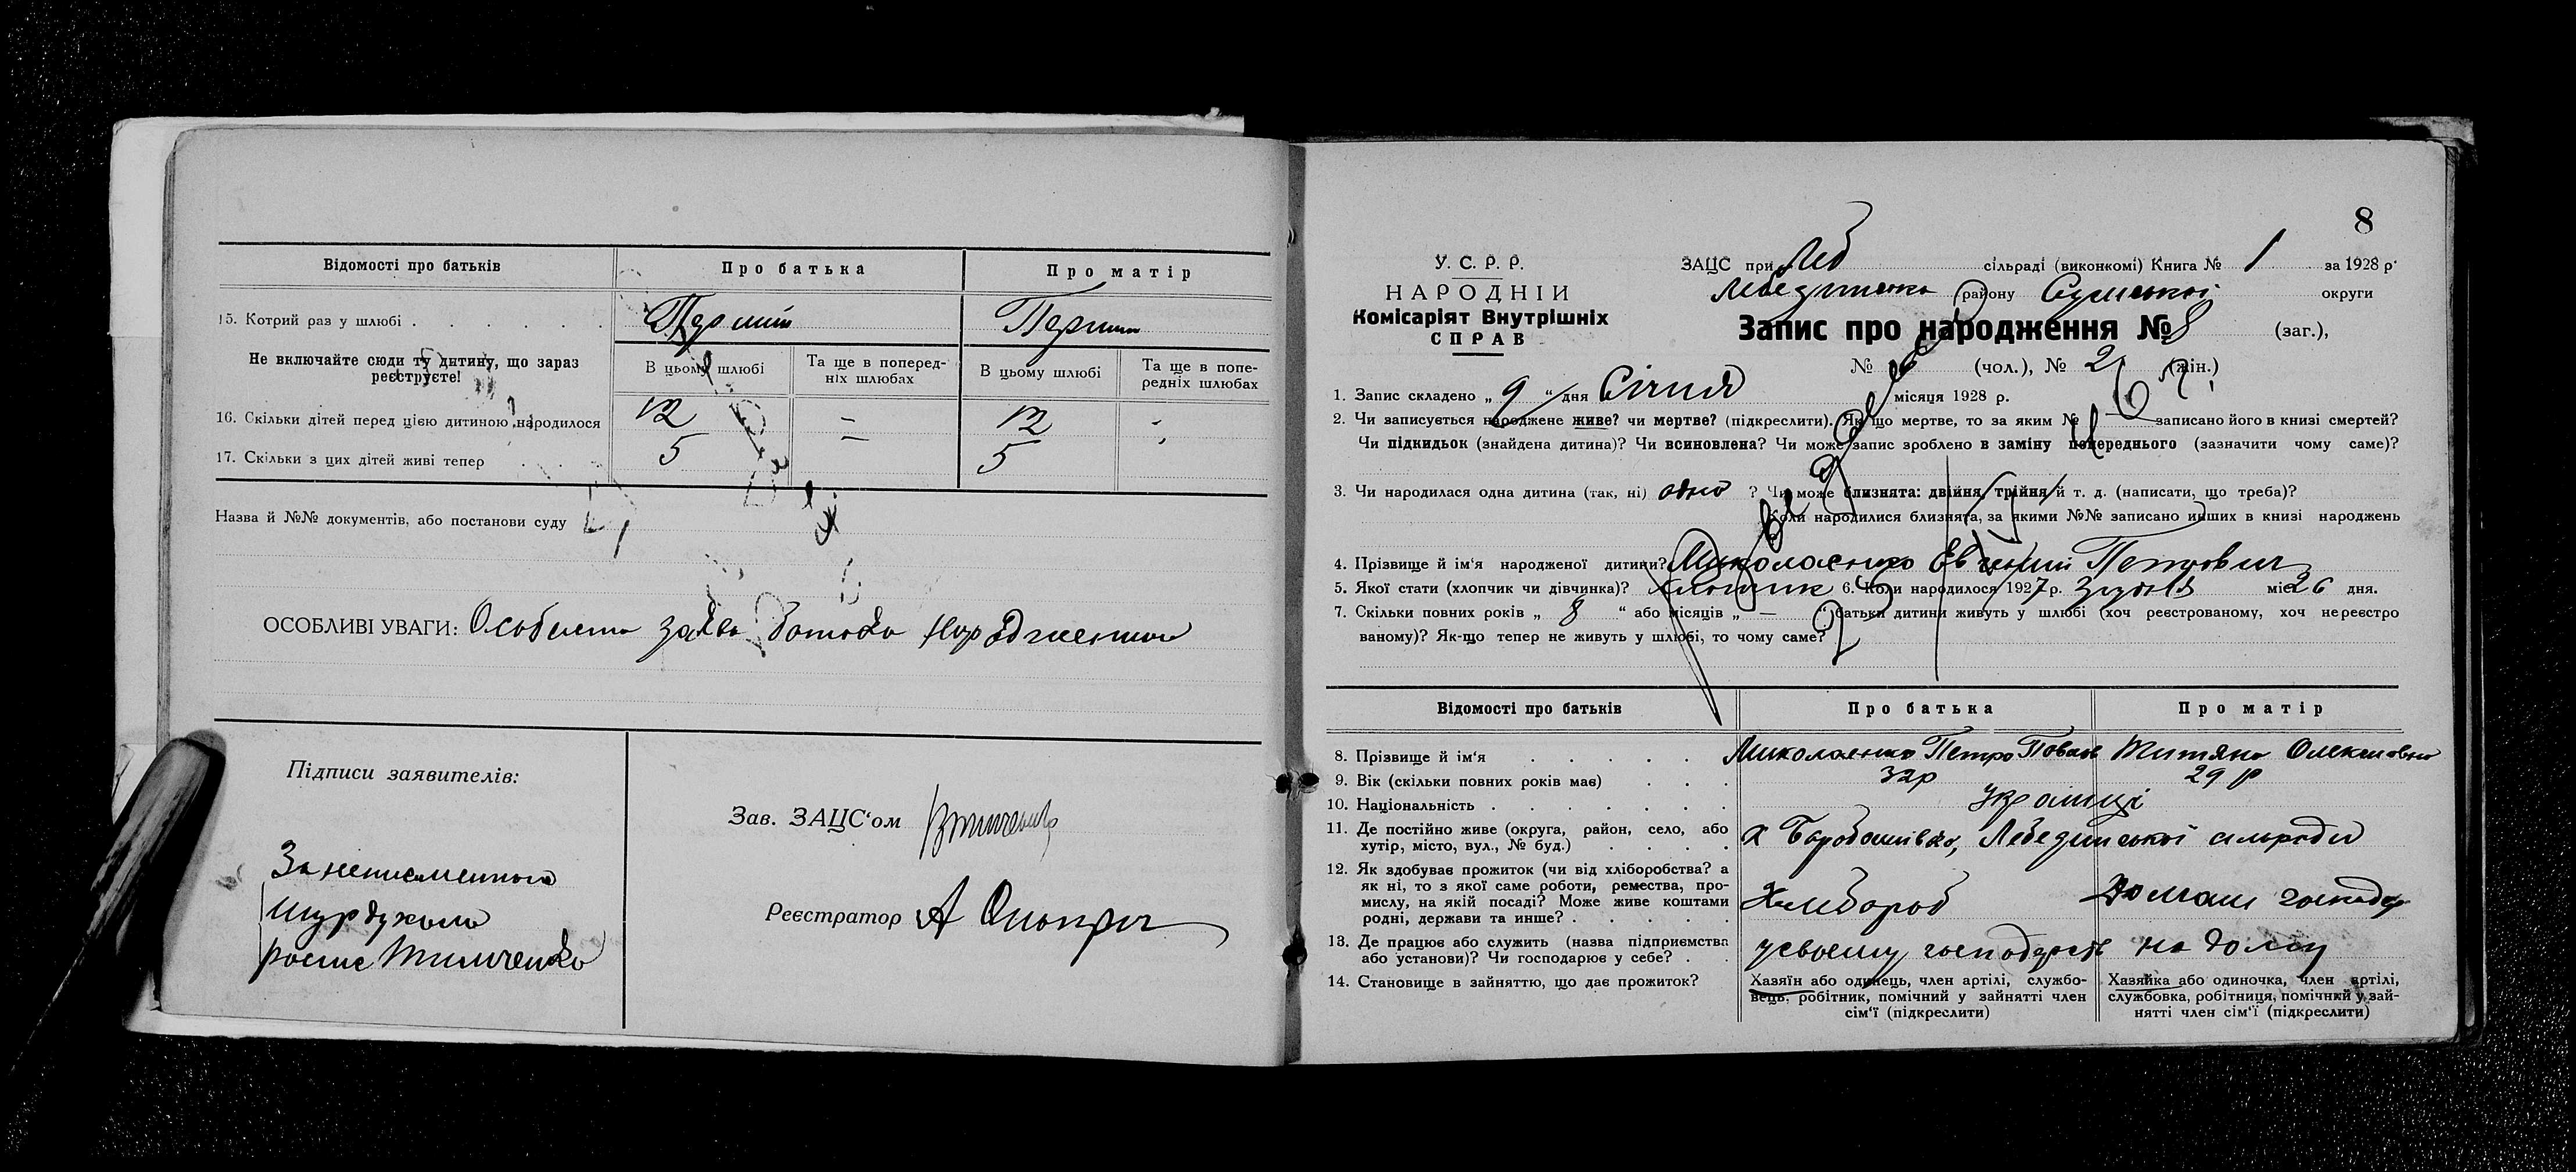 Відомості про батьків
Про батька
Про матір
15. Котрий раз у шлюбі
Перший
Перший
Не включайте сюди ту дитину, що зараз
реєструєте!
В цьому шлюбі
Та ще в поперед-
ніх шлюбах
В цьому шлюбі
Та ще в попе-
редніх шлюбах
16. Скільки дітей перед цією дитиною народилося
12
—
12
-
17. Скільки з цих дітей живі тепер
5
—
5
Назва й №№ документів, або постанови суду
ОСОБЛИВІ УВАГИ: Особиста заява батька
Підписи заявителів:
За неписьменного
росписс Тимченко
Зав. ЗАЦС‘ом
Реєстратор А
8
У. С. Р. Р.
НАРОДНІЙ
Комісаріят Внутрішніх
СПРАВ
ЗАЦС при Леб сільраді (виконкомі) Книга № 1 за 1928 р.
Лебединсько району Сумської округи
Запис про народження № 8 (заг.),
№ (чол.), № 2 (жін.)
1. Запис складено „ 9 “ дня Січня місяця 1928 р.
2. Чи записується народжене живе? чи мертве? (підкреслити). Як що мертве, то за яким № записано його в книзі смертей?
Чи підкидьок (знайдена дитина)? Чи всиновлена? Чи може запис зроблено в заміну попереднього (зазначити чому саме)?
3. Чи народилася одна дитина (так, ні) одно ? Чи може близнята: двійня, трійня й т. д. (написати, що треба)?
Коли народилися близнята, за якими №№ записано инших в книзі народжень
4. Прізвище й ім‘я народженої дитини? Миколаєнко Евгений Петрович
5. Якої стати (хлопчик чи дівчинка)? хлопчик 6. Коли народилося 1927 р. Грудня міс 26 дня.
7. Скільки повних років „ 8 “ або місяців „ — “ батьки дитини живуть у шлюбі (хоч реєстрованому, хоч нереєстро
ваному)? Як-що тепер не живуть у шлюбі, то чому саме?
Відомості про батьків
Про батька
Про матір
8. Прізвище й ім‘я
Миколаєнко Петро Павлов
Титяна Олексиовна
9. Вік (скільки повних років має)
32р
29 р
10. Національність
Українці
11. Де постійно живе (округа, район, село, або
хутір, місто, вул., № буд.)
х Барабашівка, Лебединської сільради
12. Як здобуває прожиток (чи від хліборобства? а
як ні, то з якої саме роботи, ремества, про-
мислу, на якій посаді? Може живе коштами
родні, держави та инше?
Хлибороб
Домаш господар
13. Де працює або служить (назва підприємства
або установи)? Чи господарює у себе?
у своєму господарств
на дому
14. Становище в зайняттю, що дає прожиток?
Хазяїн або одинець, член артілі, службо-
вець, робітник, помічний у зайнятті член
сім‘ї (підкреслити)
Хазяйка або одиночка, член артілі,
службовка, робітниця, помічний у зай-
нятті член сім‘ї (підкреслити)